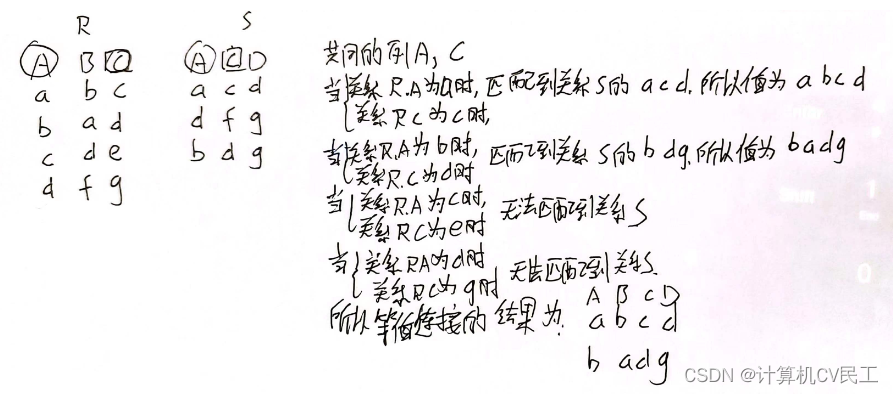 R S
A B C A C D
a b c a c d
b a d d f g
c d e b d g
d f g
共同的列A, C
当 关系R.A为a时, 匹配到关系S的 a c d. 所以值为 a b c d
关系R C为c时,
当 关系R.A为b时, 匹配到关系S的 b d g. 所以值为 b a d g
关系R.C为d时
当 关系R.A为c时, 无法匹配到关系S
关系R C为e时
当 关系RA为d时 无法匹配到关系S.
关系RC为g时
所以等值连接的结果为:
A B C D
a b c d
b a d g
CSDN @计算机CV民工